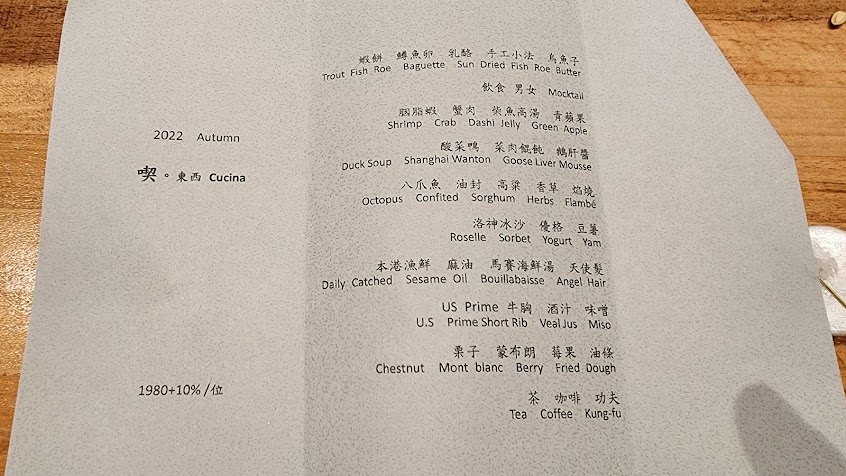 2022 Autumn
喫。東西 Cucina
1980+10% /位
蝦餅 鱒魚卵 乳酪 手工小法 烏魚子
Trout Fish Roe Baguette Sun Dried Fish Roe Butter
飲食 男女 Mocktail
胭脂蝦 蟹肉 柴魚高湯 青蘋果
Shrimp Crab Dashi Jelly Green Apple
酸菜鴨 菜肉餛飩 鵝肝醬
Duck Soup Shanghai Wanton Goose Liver Mousse
八爪魚 油封 高粱 香草 焰燒
Octopus Confited Sorghum Herbs Flambé
洛神冰沙 優格 豆薯
Roselle Sorbet Yogurt Yam
本港漁鮮 麻油 馬賽海鮮湯 天使髮
Daily Catched Sesame Oil Bouillabaisse Angel Hair
US Prime 牛胸 酒汁 味噌
U.S Prime Short Rib Veal Jus Miso
栗子 蒙布朗 莓果 油條
Chestnut Mont blanc Berry Fried Dough
茶 咖啡 功夫
Tea Coffee Kung-fu